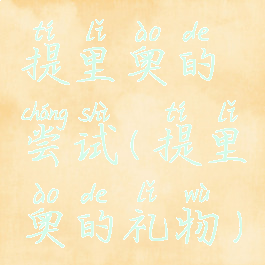 tí lǐ ào de
提里奥的
cháng shì tí lǐ
尝试(提里
ào de lǐ wù
奥的礼物)